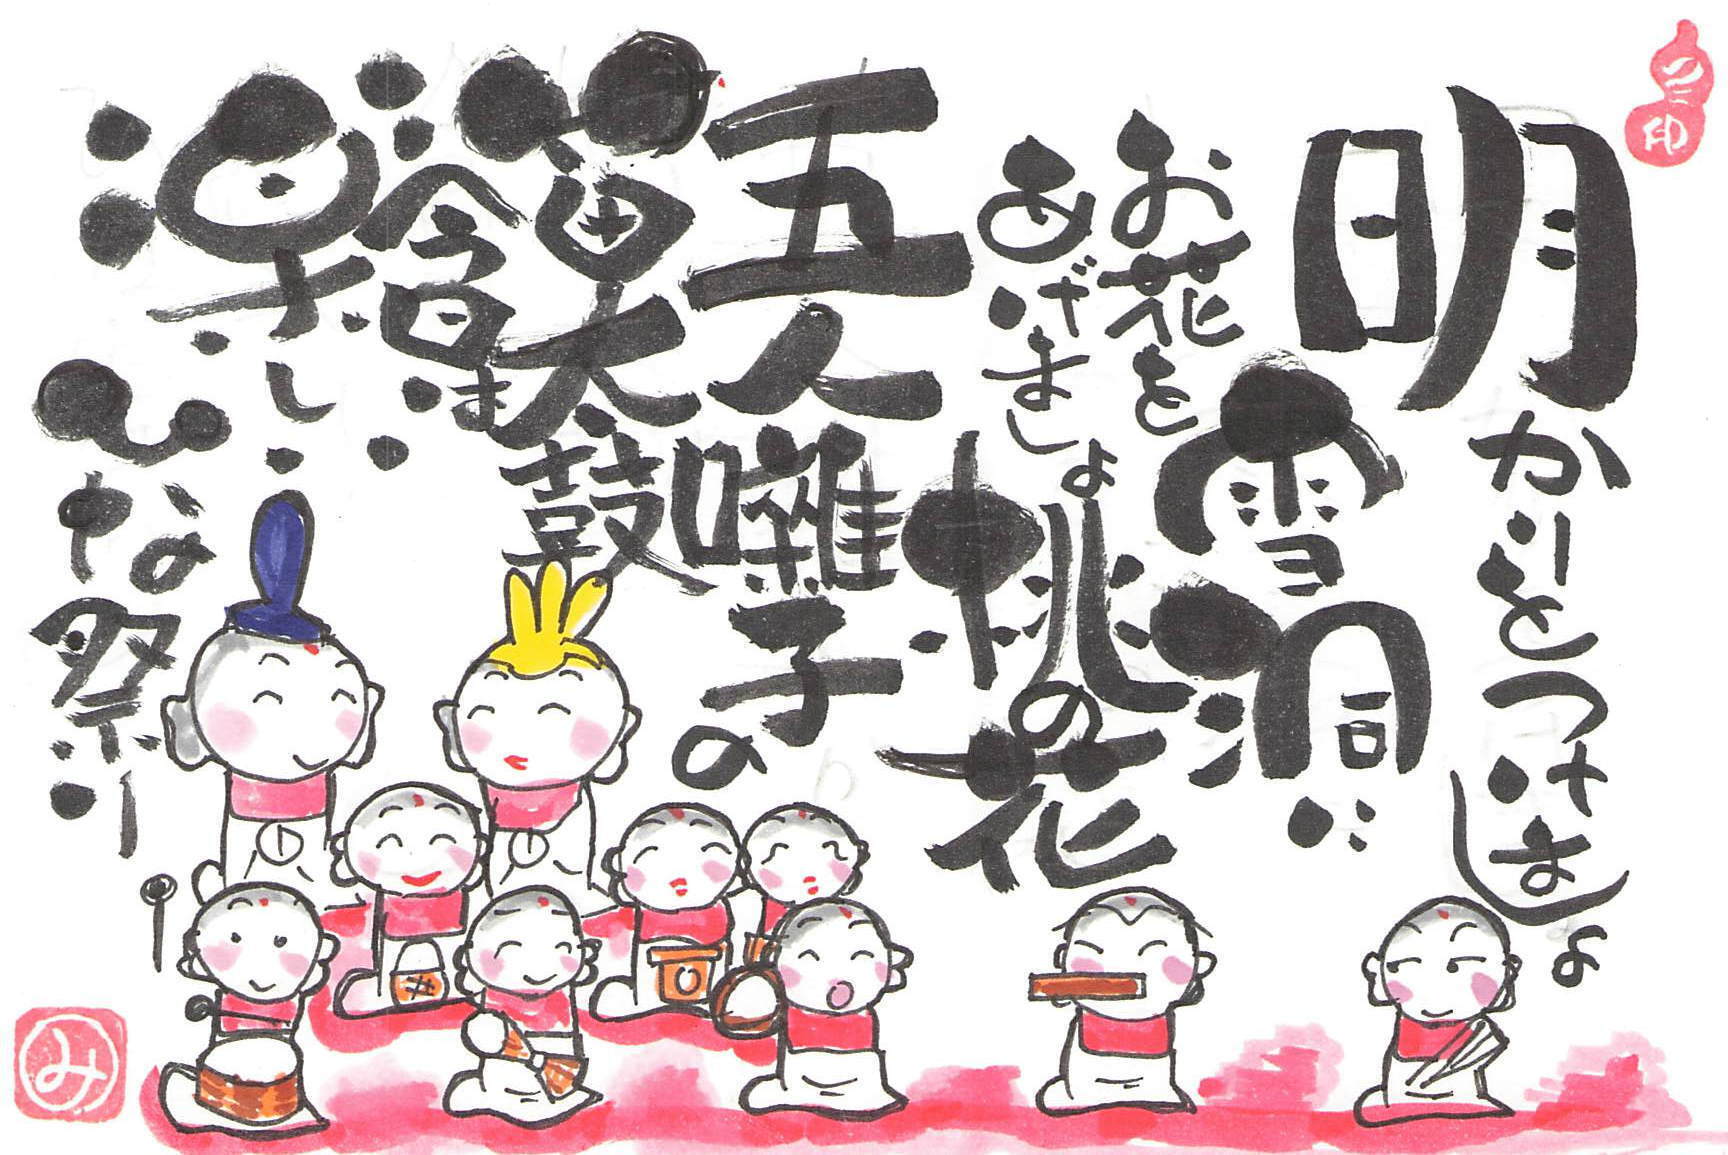 明かりをつけましょ
雪洞に
お花を
あげましょ
桃の花
五人囃子の
笛太鼓
今日は
楽しい
ひな祭り
み